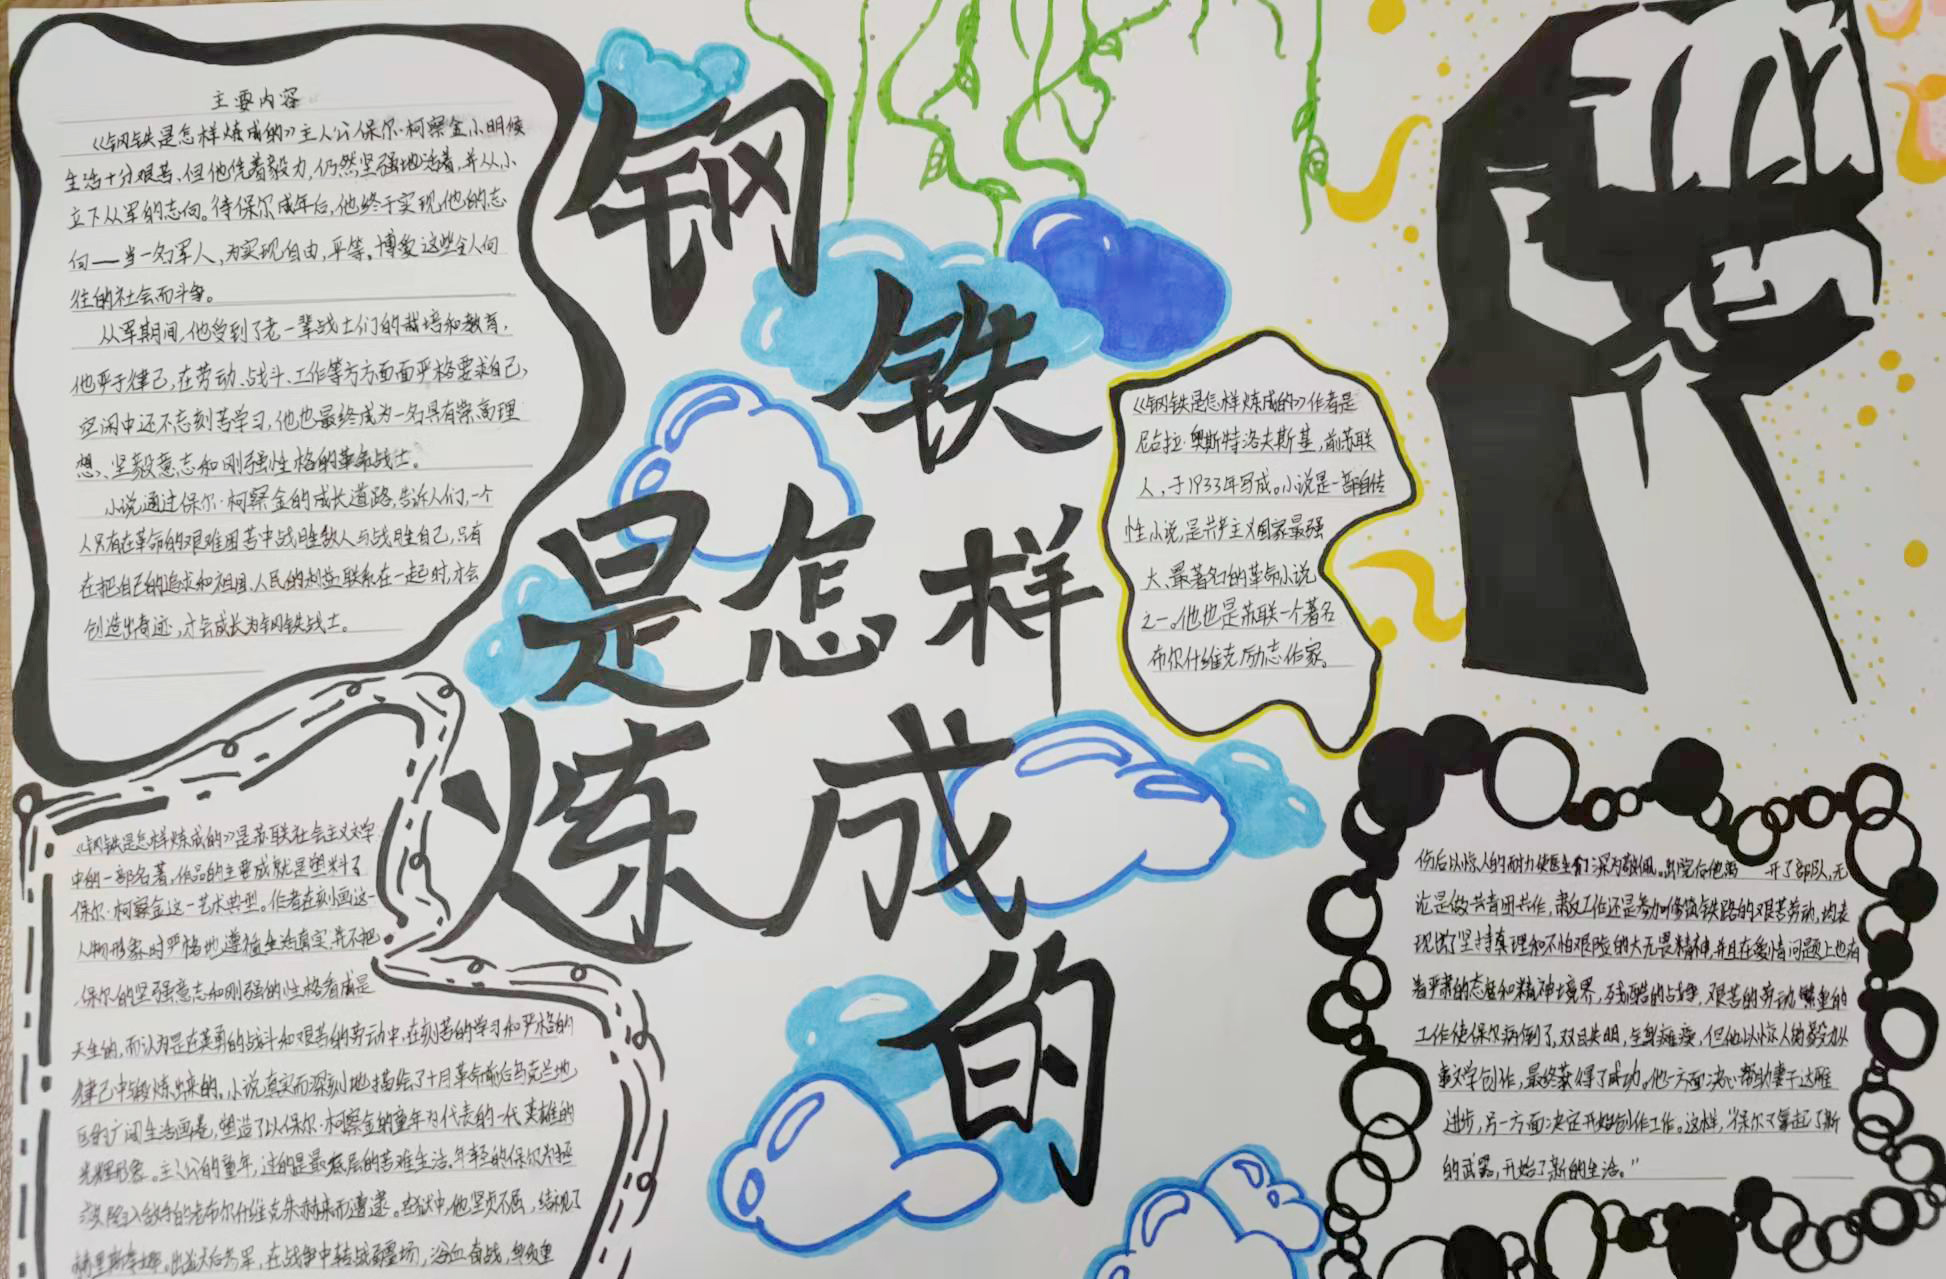 主要内容
《钢铁是怎样炼成的》主人公保尔·柯察金小时候
生活十分艰苦、但他凭着毅力,仍然坚强地活着,并从小
立下从军的志向。待保尔成年后,他终于实现他的志
向——当一名军人,为实现自由,平等。博爱这些全人向
往的社会而斗争。
从军期间,他受到了老一辈战士们的栽培和教育,
他严于律己,在劳动、战斗、工作等方方面面严格要求自己,
空闲中还不忘刻苦学习,他也最终成为一名具有崇高理
想、坚毅意志和刚强性格的革命战士。
小说通过保尔·柯察金的成长道路,告诉人们,一个
人只有在革命的艰难困苦中战胜敌人与战胜自己,只有
在把自己的追求和祖国,人民的利益联系在一起时,才会
创造出奇迹,才会成长为钢铁战士。
钢
铁
是怎样
炼成
的
《钢铁是怎样炼成的》作者是
尼古拉·奥斯特洛夫斯基,前苏联
人,于1933年写成。小说是一部自传
性小说,是共产主义国家最强
大、最著名的革命小说
之一。他也是苏联一个著名
布尔什维克励志作家。
《钢铁是怎样炼成的》是苏联社会主义文学
中的一部名著,作品的主要成就是塑料了
保尔·柯察金这一艺术典型。作者在刻画这一
人物形象时严格地遵循生活真实,并不把
保尔的坚强意志和刚强的性格看成是
天生的,而认为是在英勇的战斗和艰苦的劳动中,在刻苦的学习和严格的
律己中锻炼出来的。小说真实而深刻地描绘了十月革命前后乌克兰地
区的广阔生活画卷,塑造了以保尔·柯察金的童年为代表的一代英雄的
光辉形象。主人公的童年,过的是最底层的苦难生活。年轻的保尔为拯
救陷入敌手的老布尔什维克朱赫来而遭逮。在狱中,他坚贞不屈,结视了
出狱后参军,在战争中转战疆场,浴血奋战,
伤后以惊人的耐力使医生们深为敬佩。出院后他离 开了部队,无
论是做共青团共作,肃反工作还是参加修筑铁路的艰苦劳动,均表
现出了坚持真理和不怕艰险的大无畏精神,并且在爱情问题上也有
着严肃的态度和精神境界,残酷的战争,艰苦的劳动繁重的
工作使保尔病倒了,双目失明,全身瘫痪,但他以惊人的毅力从
事文学创作,最终获得了成功。他一方面决心帮助妻子达雅
进步,另一方面决定开始创作工作。这样,“保尔又拿起了新
的武器,开始了新的生活。”